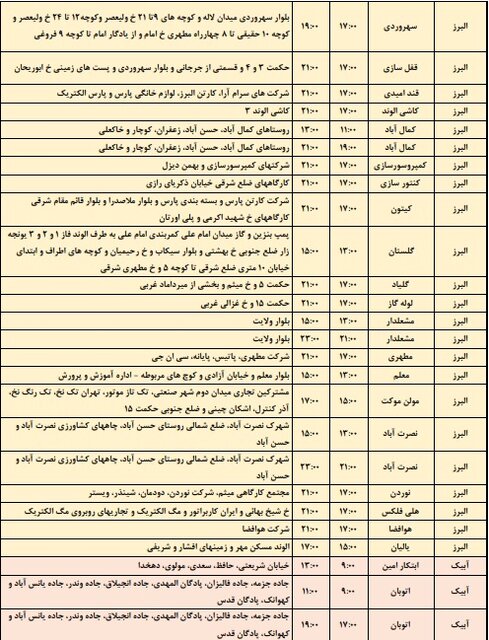 البرز سهروردی ۱۷:۰۰ ۱۹:۰۰ بلوار سهروردی میدان لاله و کوچه های ۹تا ۲۱ خ ولیعصر وکوچه۱۲ تا ۲۴ خ ولیعصر و
کوچه ۱۰ حقیقی تا ۸ چهارراه مطهری خ امام و از یادگار امام تا کوچه ۹ فروغی
البرز قفل سازی ۱۷:۰۰ ۲۱:۰۰ حکمت ۳ و ۴ و قسمتی از جرجانی و بلوار سهروردی و پست های زمینی خ ابوریحان
البرز قند امیدی ۱۷:۰۰ ۲۱:۰۰ شرکت های سرام آرا، کارتن البرز، لوازم خانگی پارس و پارس الکتریک
البرز کاشی الوند ۱۷:۰۰ ۲۱:۰۰ کاشی الوند ۳
البرز کمال آباد ۱۱:۰۰ ۱۳:۰۰ روستاهای کمال آباد، حسن آباد، زعفران، کوچار و خاکعلی
البرز کمال آباد ۱۹:۰۰ ۲۱:۰۰ روستاهای کمال آباد، حسن آباد، زعفران، کوچار و خاکعلی
البرز کمپروسورسازی ۱۷:۰۰ ۲۱:۰۰ شرکتهای کمپرسورسازی و بهمن دیزل
البرز کنتور سازی ۱۷:۰۰ ۲۱:۰۰ کارگاههای ضلع شرقی خیابان ذکریای رازی
البرز کیتون ۱۷:۰۰ ۲۱:۰۰ شرکت کارتن پارس و بسته بندی پارس و بلوار ملاصدرا و بلوار قائم مقام شرقی
کارگاههای خ شهید اکرمی و پلی اورتان
البرز گلستان ۱۳:۰۰ ۱۵:۰۰ پمپ بنزین و گاز میدان امام علی کمربندی امام علی به طرف الوند فاز ۱ و ۲ و ۳ یونجه
زار ضلع جنوبی خ بهشتی و بلوار سیکاب و خ رحیمیان و کوچه های اطراف و ابتدای
خیابان ۱۰ متری ضلع شرقی تا کوچه ۵ و خ مطهری شرقی
البرز گلیاد ۱۷:۰۰ ۲۱:۰۰ حکمت ۵ و خ میثم و بخشی از میرداماد غربی
البرز لوله گاز ۱۷:۰۰ ۲۱:۰۰ حکمت ۱۵ و خ غزالی غربی
البرز مشعلدار ۱۳:۰۰ ۱۵:۰۰ بلوار ولایت
البرز مشعلدار ۲۱:۰۰ ۲۳:۰۰ بلوار ولایت
البرز مطهری ۱۷:۰۰ ۲۱:۰۰ شرکت مطهری، پاتیس، پایانه، سی ان جی
البرز معلم ۱۳:۰۰ ۱۵:۰۰ بلوار معلم و خیابان آزادی و کوچ های مربوطه - اداره آموزش و پرورش
البرز مولن موکت ۱۵:۰۰ ۱۷:۰۰ مشترکین تجاری میدان دوم شهر صنعتی، تک تاز موتور، تهران تک نخ، تک رنگ نخ،
آذر کنترل، اشکان چینی و ضلع جنوبی حکمت ۱۵
البرز نصرت آباد ۱۳:۰۰ ۱۵:۰۰ شهرک نصرت آباد، ضلع شمالی روستای حسن آباد، چاههای کشاورزی نصرت آباد و
حسن آباد
البرز نصرت آباد ۲۱:۰۰ ۲۳:۰۰ شهرک نصرت آباد، ضلع شمالی روستای حسن آباد، چاههای کشاورزی نصرت آباد و
حسن آباد
البرز نوردن ۱۷:۰۰ ۲۱:۰۰ مجتمع کارگاهی میثم، شرکت نوردن، دودمان، شیندر، ویستر
البرز هلی فلکس ۱۷:۰۰ ۲۱:۰۰ خ شیخ بهائی و ایران کاربراتور و مگ الکتریک و تجاریهای روبروی مگ الکتریک
البرز هوافضا ۱۷:۰۰ ۲۱:۰۰ شرکت هوافضا
البرز یالیان ۱۵:۰۰ ۱۷:۰۰ الوند مسکن مهر و زمینهای افشار و شریفی
آبیک ابتکار امین ۹:۰۰ ۱۳:۰۰ خیابان شریعتی، حافظ، سعدی، مولوی، دهخدا
آبیک اتوبان ۹:۰۰ ۱۱:۰۰ جاده جزمه، جاده فالیزان، پادگان المهدی، جاده انجیلاق، جاده وندر، جاده یانس آباد و
کهوانک، پادگان قدس
آبیک اتوبان ۱۷:۰۰ ۱۹:۰۰ جاده جزمه، جاده فالیزان، پادگان المهدی، جاده انجیلاق، جاده وندر، جاده یانس آباد و
کهوانک، پادگان قدس